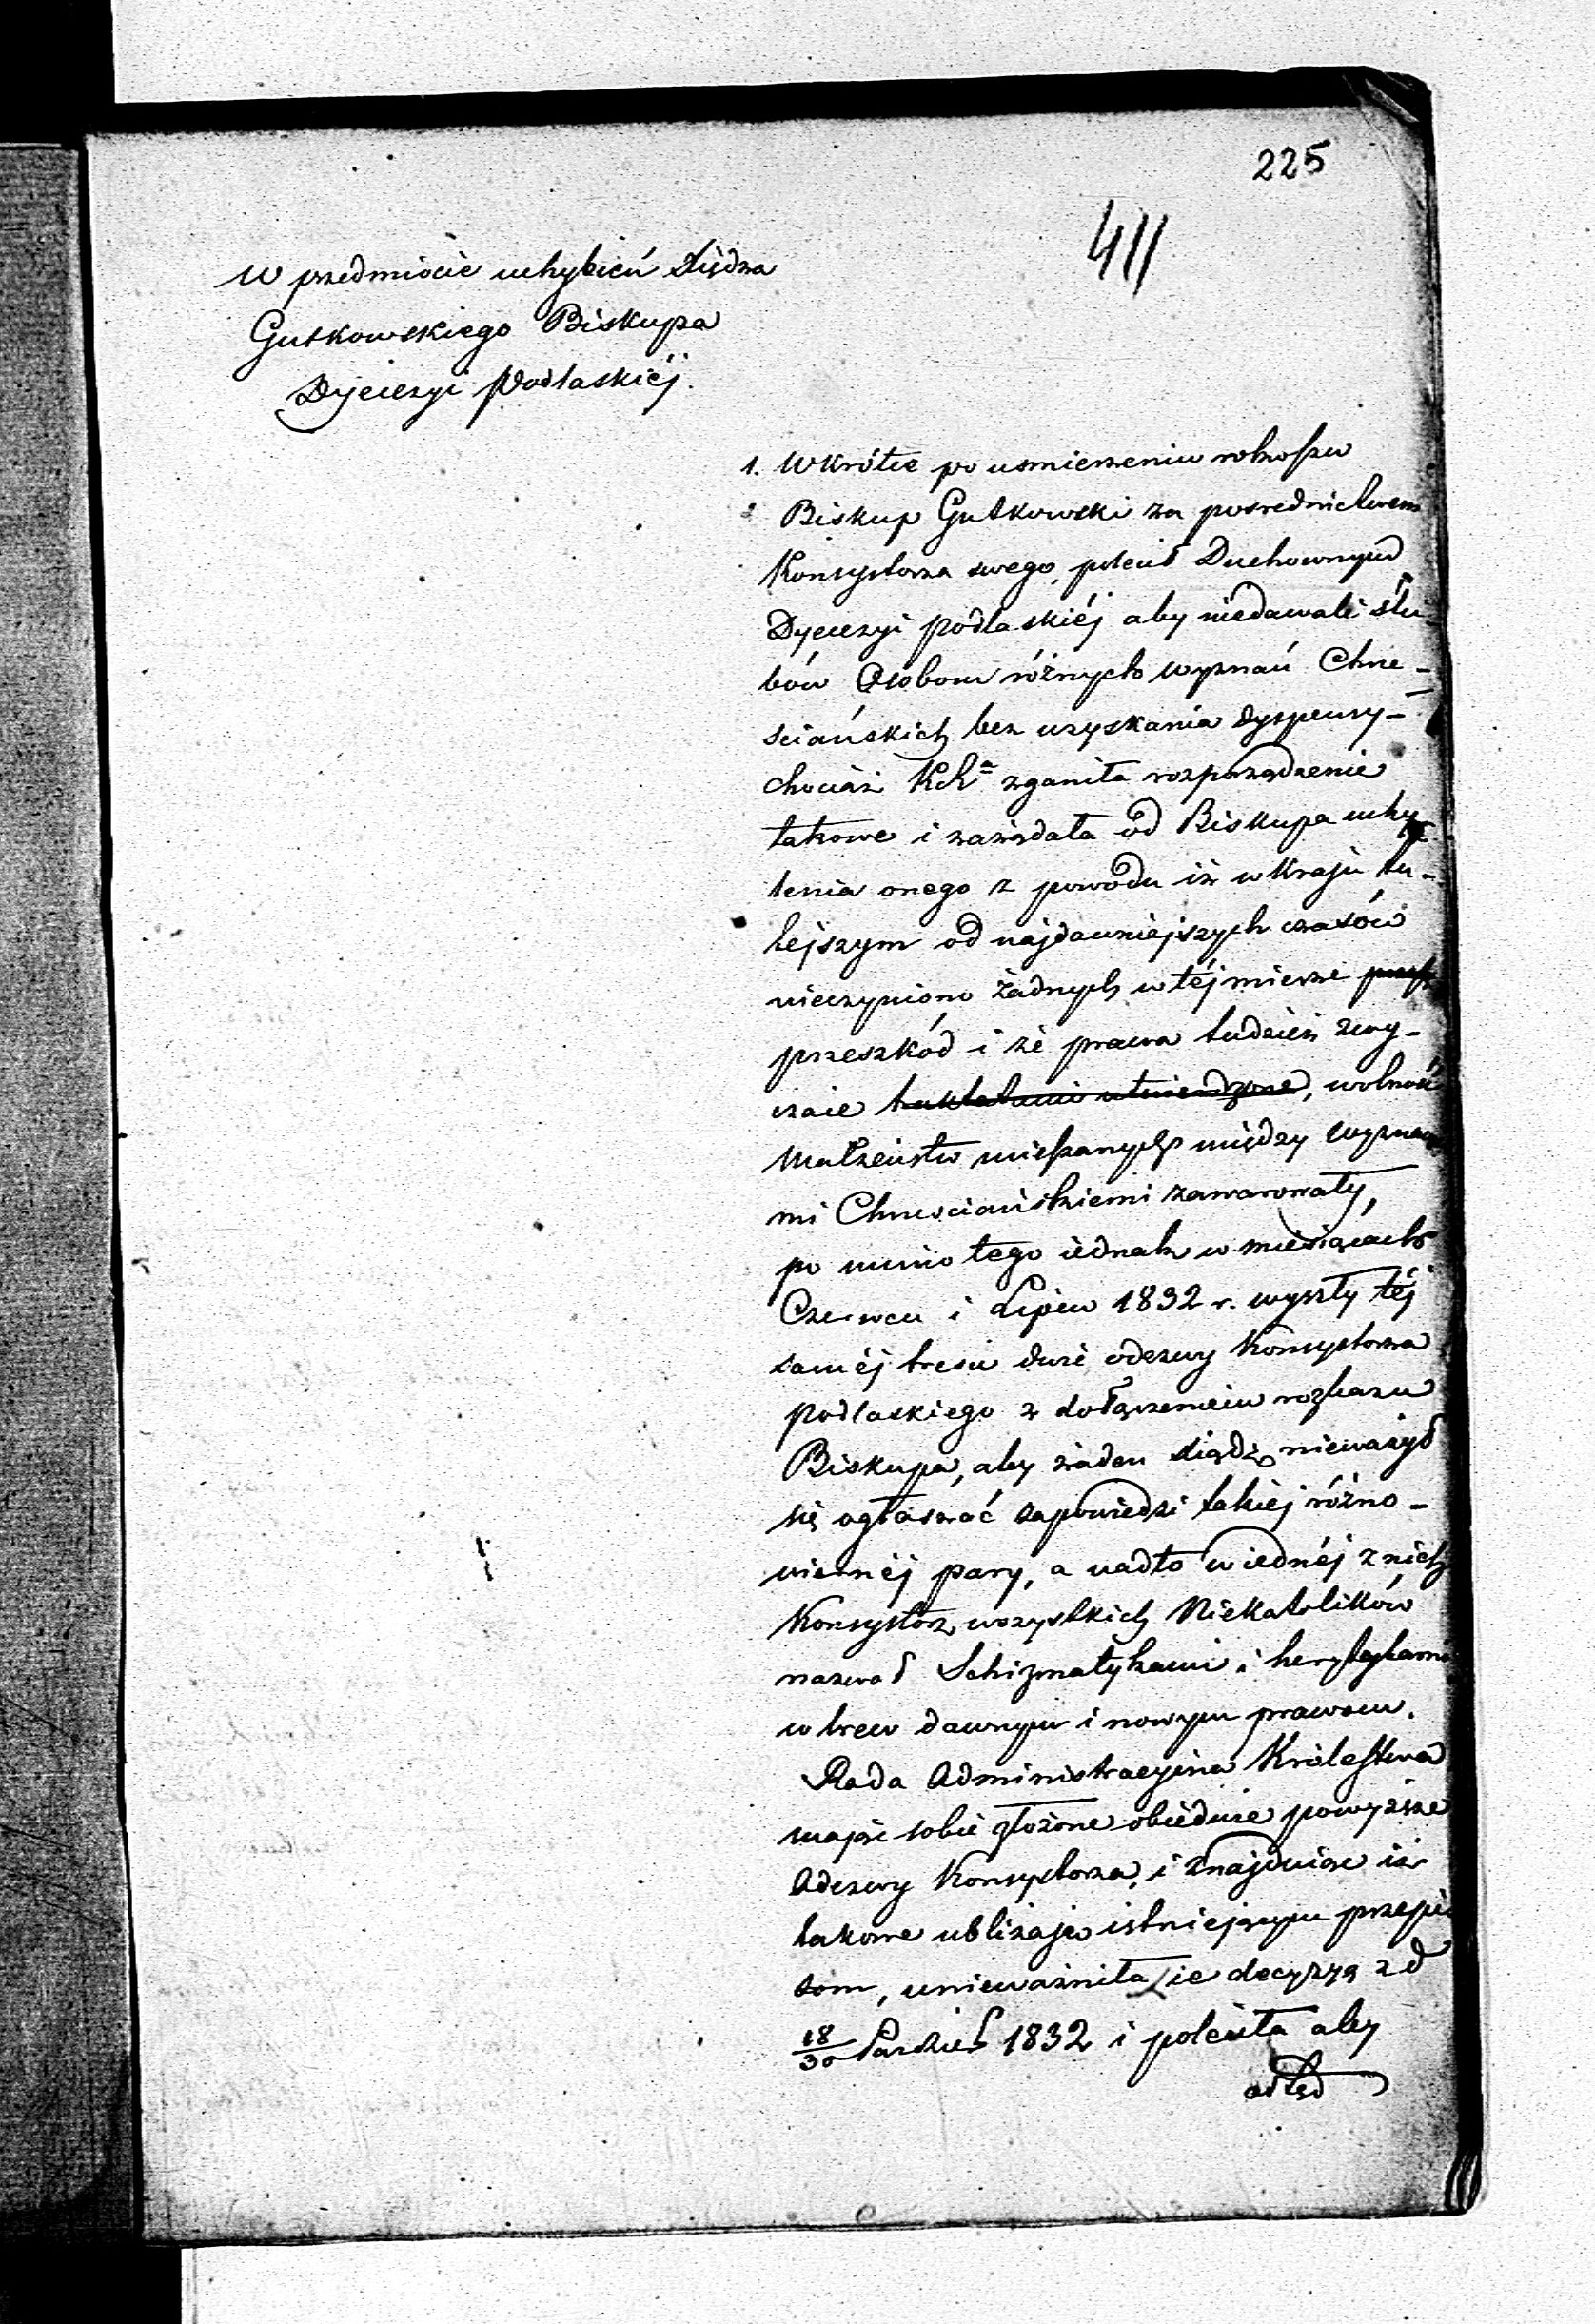 225
411
W przedmiocie uchybień Xiędza
Gutkowskiego Biskupa
Dyecezyi Podlaskiéj.
1. Wkrótce po usmierzeniu rokoszu
Biskup Gutkowski za posrednictwem
Konsystorza swego, polecił Duchownym
Dyecezyi podlaskiéj aby niedawali ślu-
bów Osobom różnych wyznań Chrze-
sciańskich bez uzyskania dyspensy –
chociaż zganiła rozporządzenie
takowe i zażądała od Biskupa uchy
lenia onego z powodu iż w Kraju tu-
tejszym od najdawniejszych czasów
nieczyniono żadnych w téj mierze
przeszkód i że prawa tudzież zwy-
czaie traktatami utwierdzone, wolność
Małżeństw mieszanych między wyznania
mi Chrzesciańskiemi zawarowały,
po mimo tego iednak w miesiącach
Czerwcu i Lipcu 1832 r. wyszły téj
saméj tresci dwie odezwy Konsystorza
podlaskiego z dołączeniem rozkazu
Biskupa, aby żaden Xiądz nieważył
się ogłaszać zapowiedzi takiej różno-
wiernéj pary, a nadto w iednéj z nich
Konsystorz wszystkich Niekatolików
nazwał Schizmatykami i heretykami
w brew dawnym i nowym prawom.
Rada Administracyina Królestwa
mając sobie złożone obiedwie powyższe
Odezwy Konsystorza, i znajduiąc iż
takowe ubliżają istniejącym przepi
som, unieważniła ie decyzyą z d
18/30 Paździer 1832 i poleciła aby
odtąd